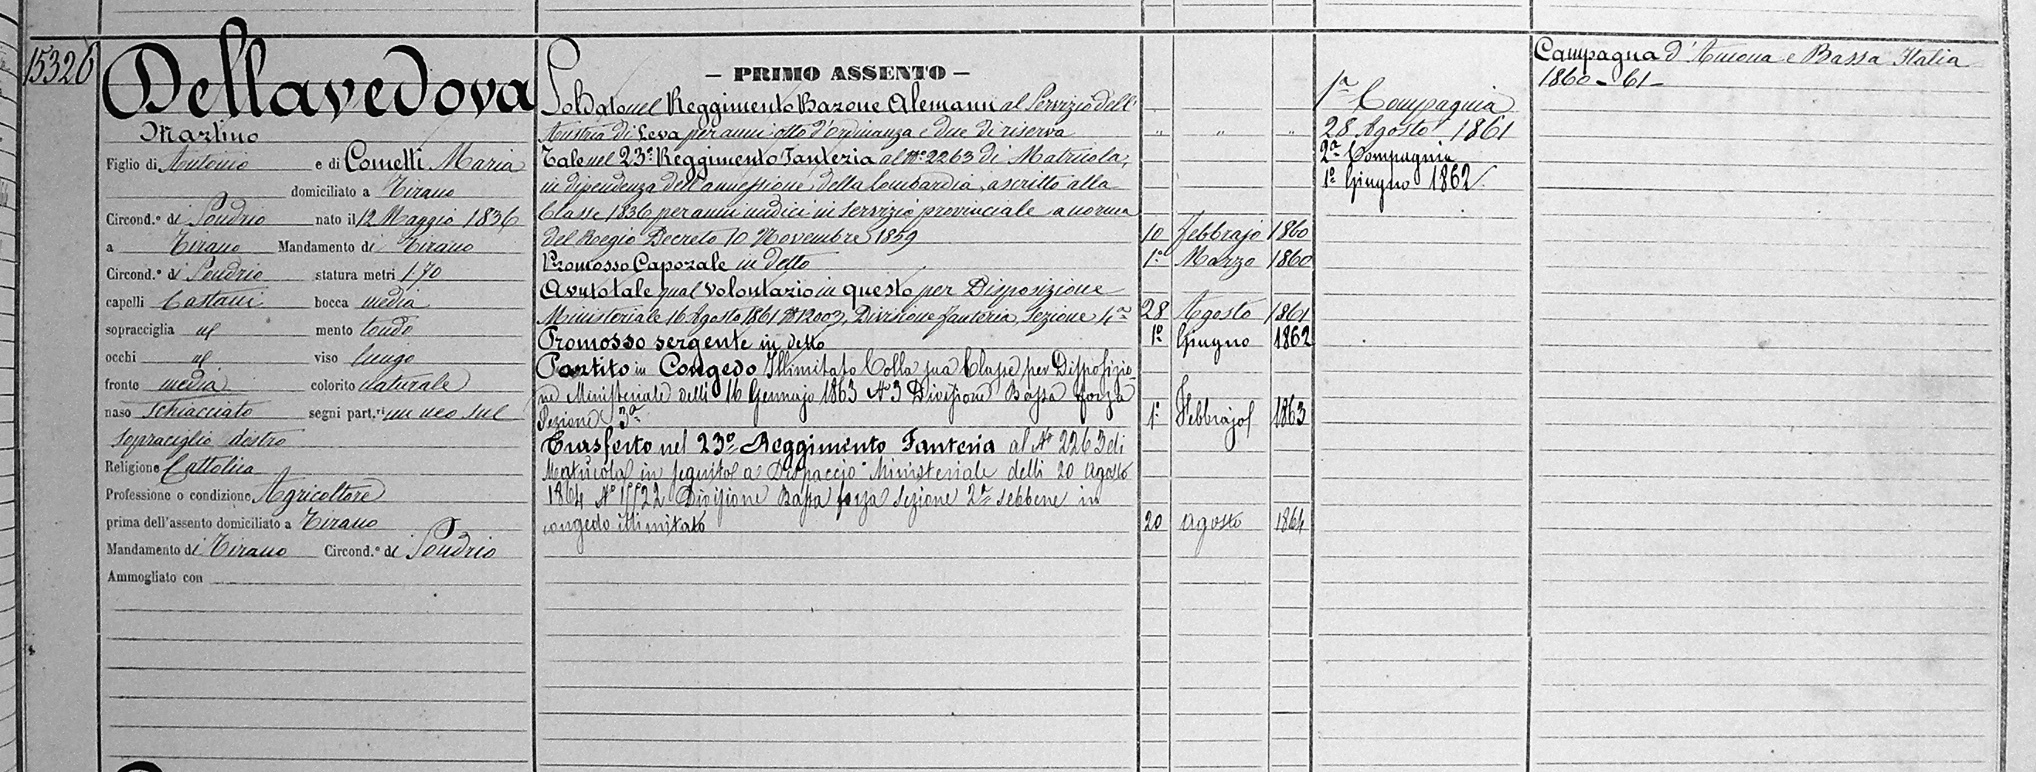 15326
Dellavedova
Martino
Figlio di Antonio e di Cometti Maria
domiciliato a Tirano
Circond.º di Sondrio nato il 12 Maggio 1836
a Tirano Mandamento di Tirano
Circond.º di Sondrio statura metri 1,70
capelli Castani bocca media
sopracciglia id mento tondo
occhi id viso lungo
fronte media colorito naturale
naso schiacciato segni part.ri un neo sul
sopraciglio destro
Religione Cattolica
Professione o condizione Agricoltore
prima dell'assento domiciliato a Tirano
Mandamento di Tirano Circond.º di Sondrio
Ammogliato con
— PRIMO ASSENTO —
Soldato nel Reggimento Barone Alemann al Servizio dell'
Austria di Leva per anni otto d'ordinanza e due di riserva " " "
Tale nel 23º Reggimento Fanteria al Nº 2263 di Matricola,
in dipendenza dell'annessione della Lombardia, ascritto alla
Classe 1836 per anni undici in servizio provinciale a norma
del Regio Decreto 10 Novembre 1859 10 Febbrajo 1860
Promosso Caporale in detto 1º Marzo 1860
Avuto tale qual volontario in questo per Disposizione
Ministeriale 16 Agosto 1861 Nº 12007, Divisione fanteria, Sezione 4ª 28 Agosto 1861
Promosso sergente in detto 1º Giugno 1862
Partito in Congedo Illimitato Colla sua Classe per Disposizio-
ne Ministeriale delli 16 Gennajo 1863 Nº 3 Divisione Bassa forza
Sezione 3ª 1º Febbrajo 1863
Trasferto nel 23º Reggimento Fanteria al Nº 2263 di
Matricola in seguito a Dispaccio Ministeriale delli 20 Agosto
1864 Nº Divisione Bassa forza Sezione 2ª sebbene in
congedo illimitato 20 Agosto 1864
1ª Compagnia
28 Agosto 1861
2ª Compagnia
1º Giugno 1862
Campagna d'Ancona e Bassa Italia
1860-61-